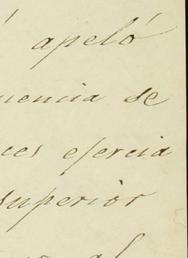 apeló
uencia se
ces ejercia
superior
al